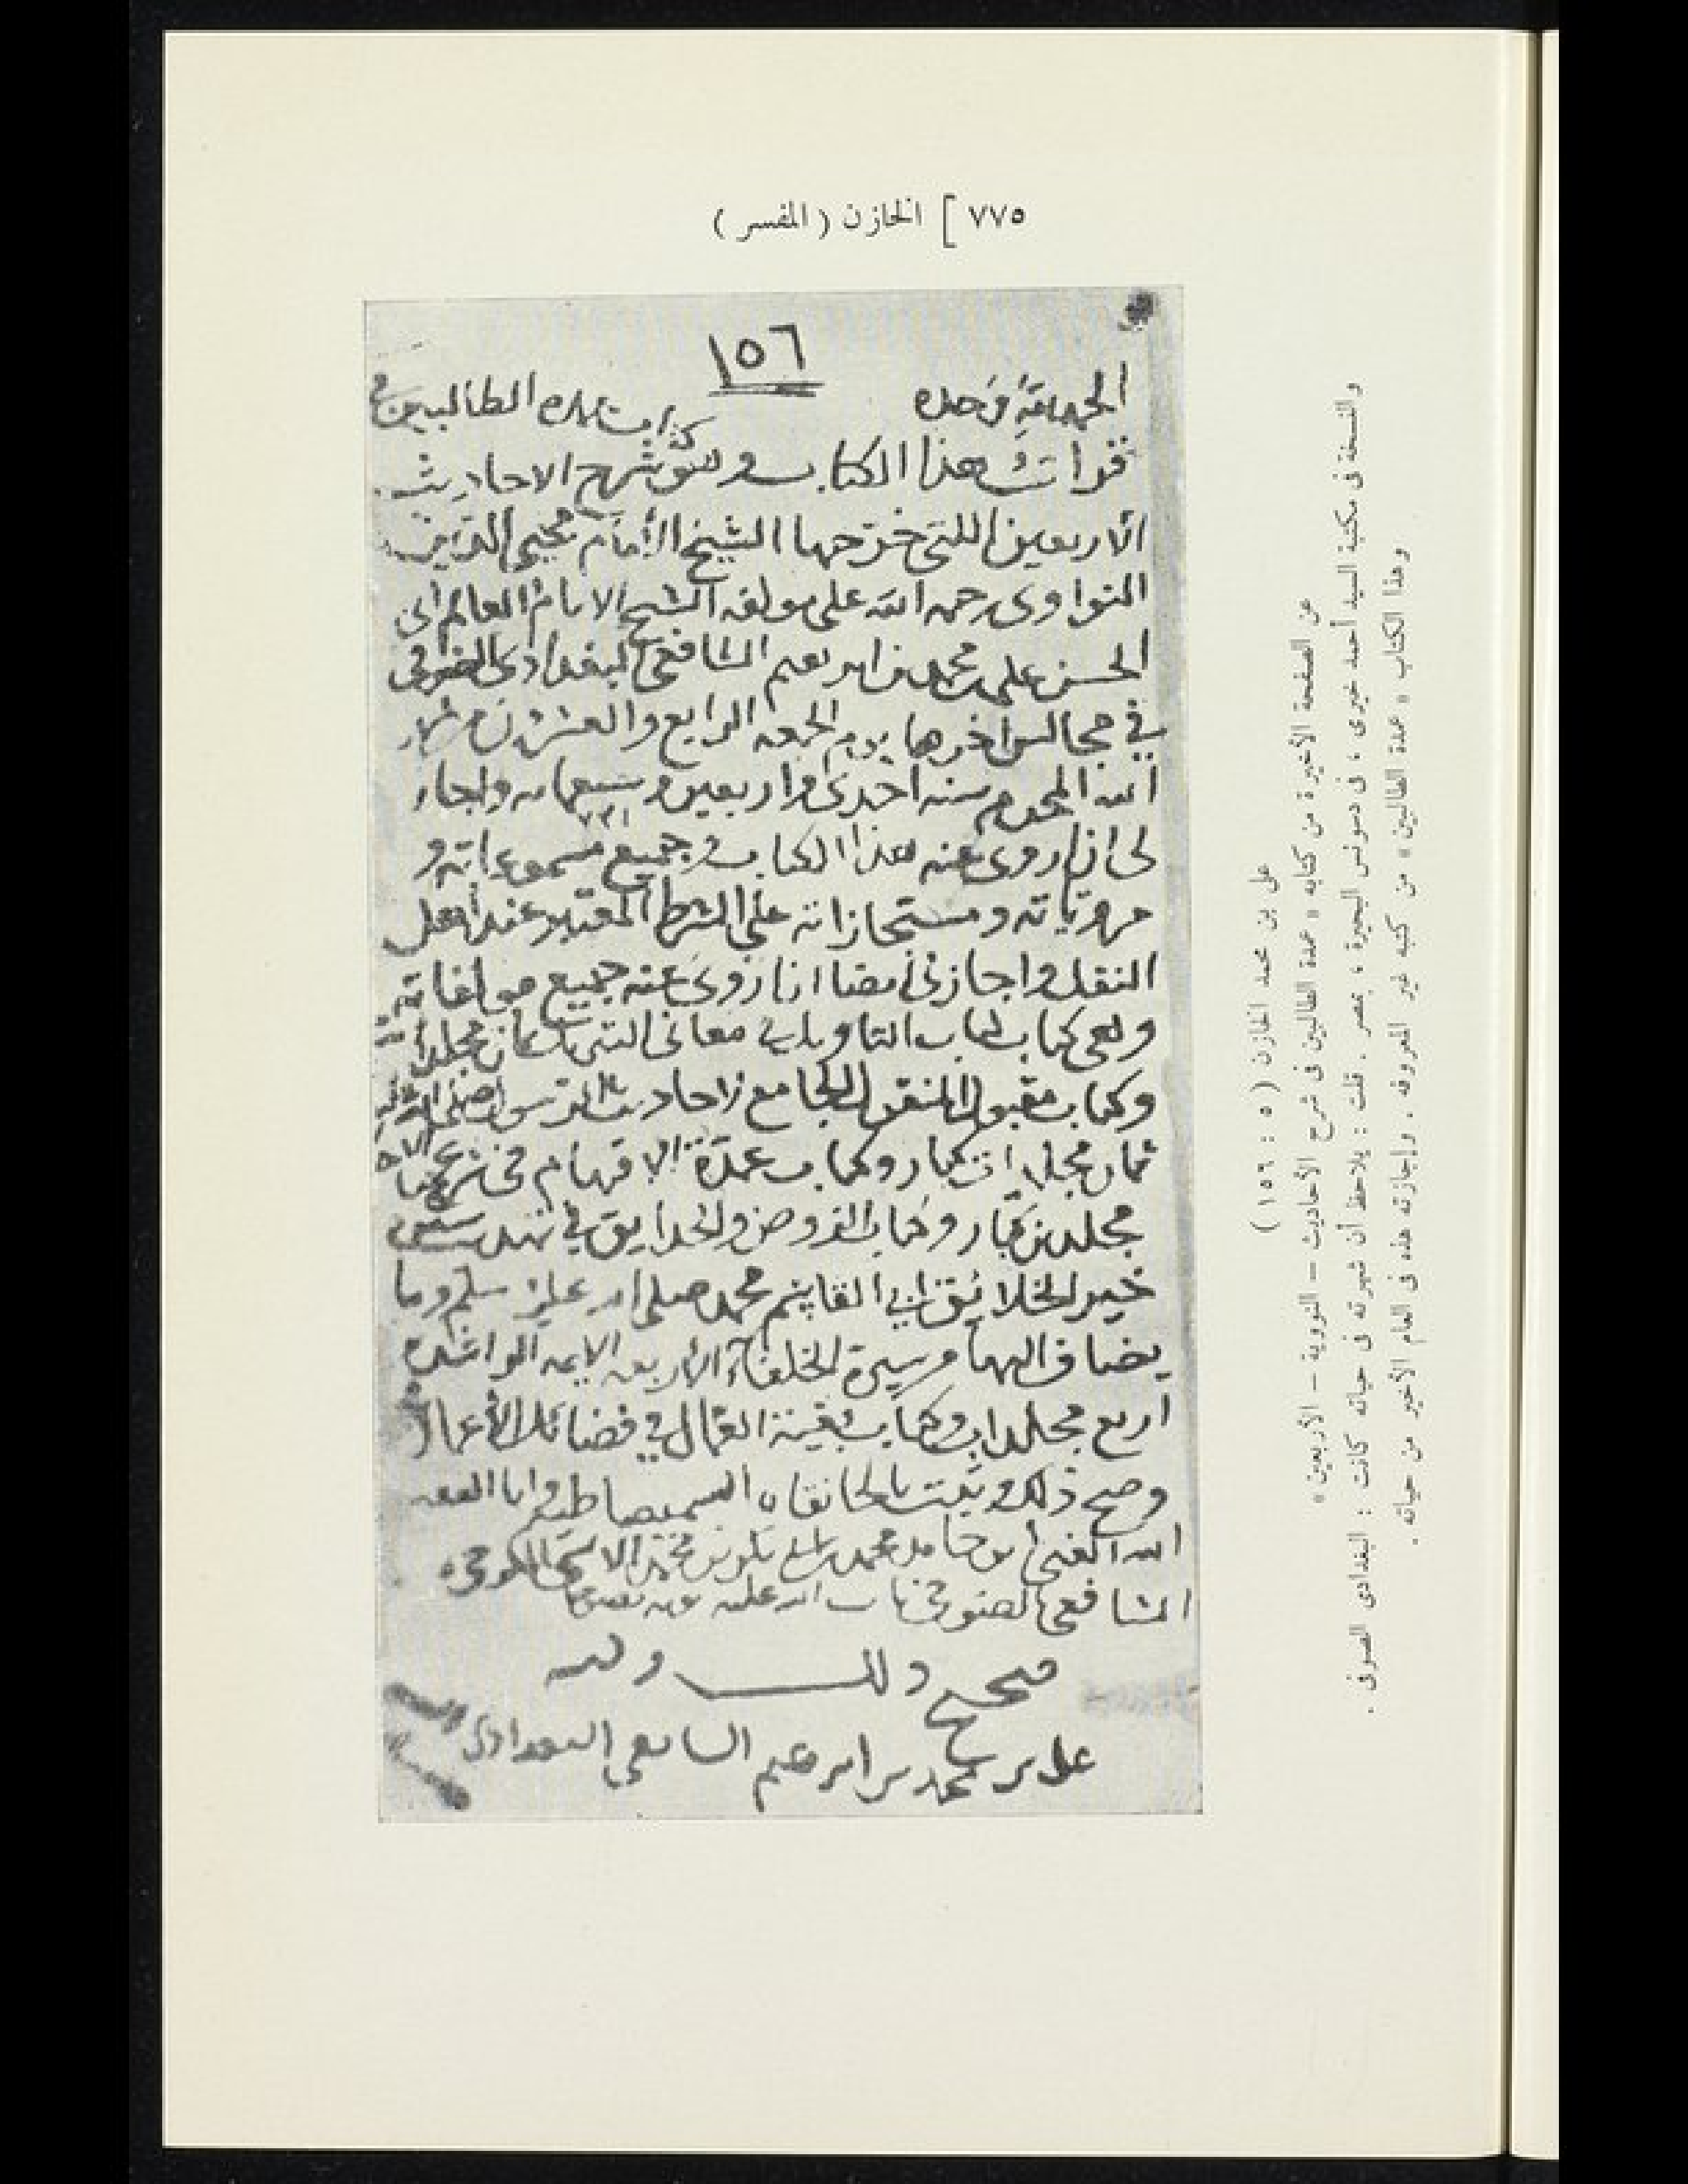 ٧٧٥ ] الخازن ( المفسر )
١٥٦
الحمد لله وحده
كتاب عمدة الطالبين في
قرات هذا الكتاب وهو شرح الاحاديث
الاربعين اللتي خرجها الشيخ الامام محيي الدين
النواوى رحمه الله على مولفه الشيخ الامام العالم ابى
الحسن على بن محمد بن ابرهيم الشافعى البغدادى الصوفى
في مجالس اخرها يوم الجمعه الرابع والعشرين من شهر
الله المحرم سنه احدى واربعين وسبعمايه واجاز
٧٤١
لى ان اروى عنه هذا الكتاب وجميع مسموعاته و
مروياته ومستجازاته على الشرط المعتبر عند اهل
النقل واجازنى ايضا ان اروى عنه جميع مولفاته
وهى كتاب لباب التاويل في معانى التنزيل ثمان مجلدات
وكتاب مقبول المنقول الجامع لاحاديث الرسول صلى الله عليه
ثمان مجلدات كبار وكتاب عمدة الافهام فى شرح
مجلدين كبار وكتاب الروض والحدايق في تهذيب
خير الخلائق ابى القاسم محمد صلى الله عليه وسلم وما
يضاف اليها من سيرة الخلفاء الاربعه الايمه الراشدة
اربع مجلدات وكتاب في فضائل الأعمال
وصح ذلك وثبت بالخانقاه السميصاطيه وانا الفقير
الله الغنى ابو حامد محمد بن محمد
الشافعى الصوفى تاب الله عليه
صحيح ذلك وكتبه
على بن محمد بن ابرهيم الشافعي البغدادى
على بن محمد الخازن ( ٥ : ١٥٦ )
عن الصفحة الأخيرة من كتابه « عمدة الطالبين فى شرح الأحاديث – النووية – الأربعين »
والنسخة فى مكتبة السيد أحمد خيرى ، فى دسونس البحيرة ، بمصر . قلت : يلاحظ أن شهرته فى حياته كانت : البغدادى الصوفى .
وهذا الكتاب « عمدة الطالبين » من كتبه غير المعروفه . وإجازته هذه فى العام الأخير من حياته .